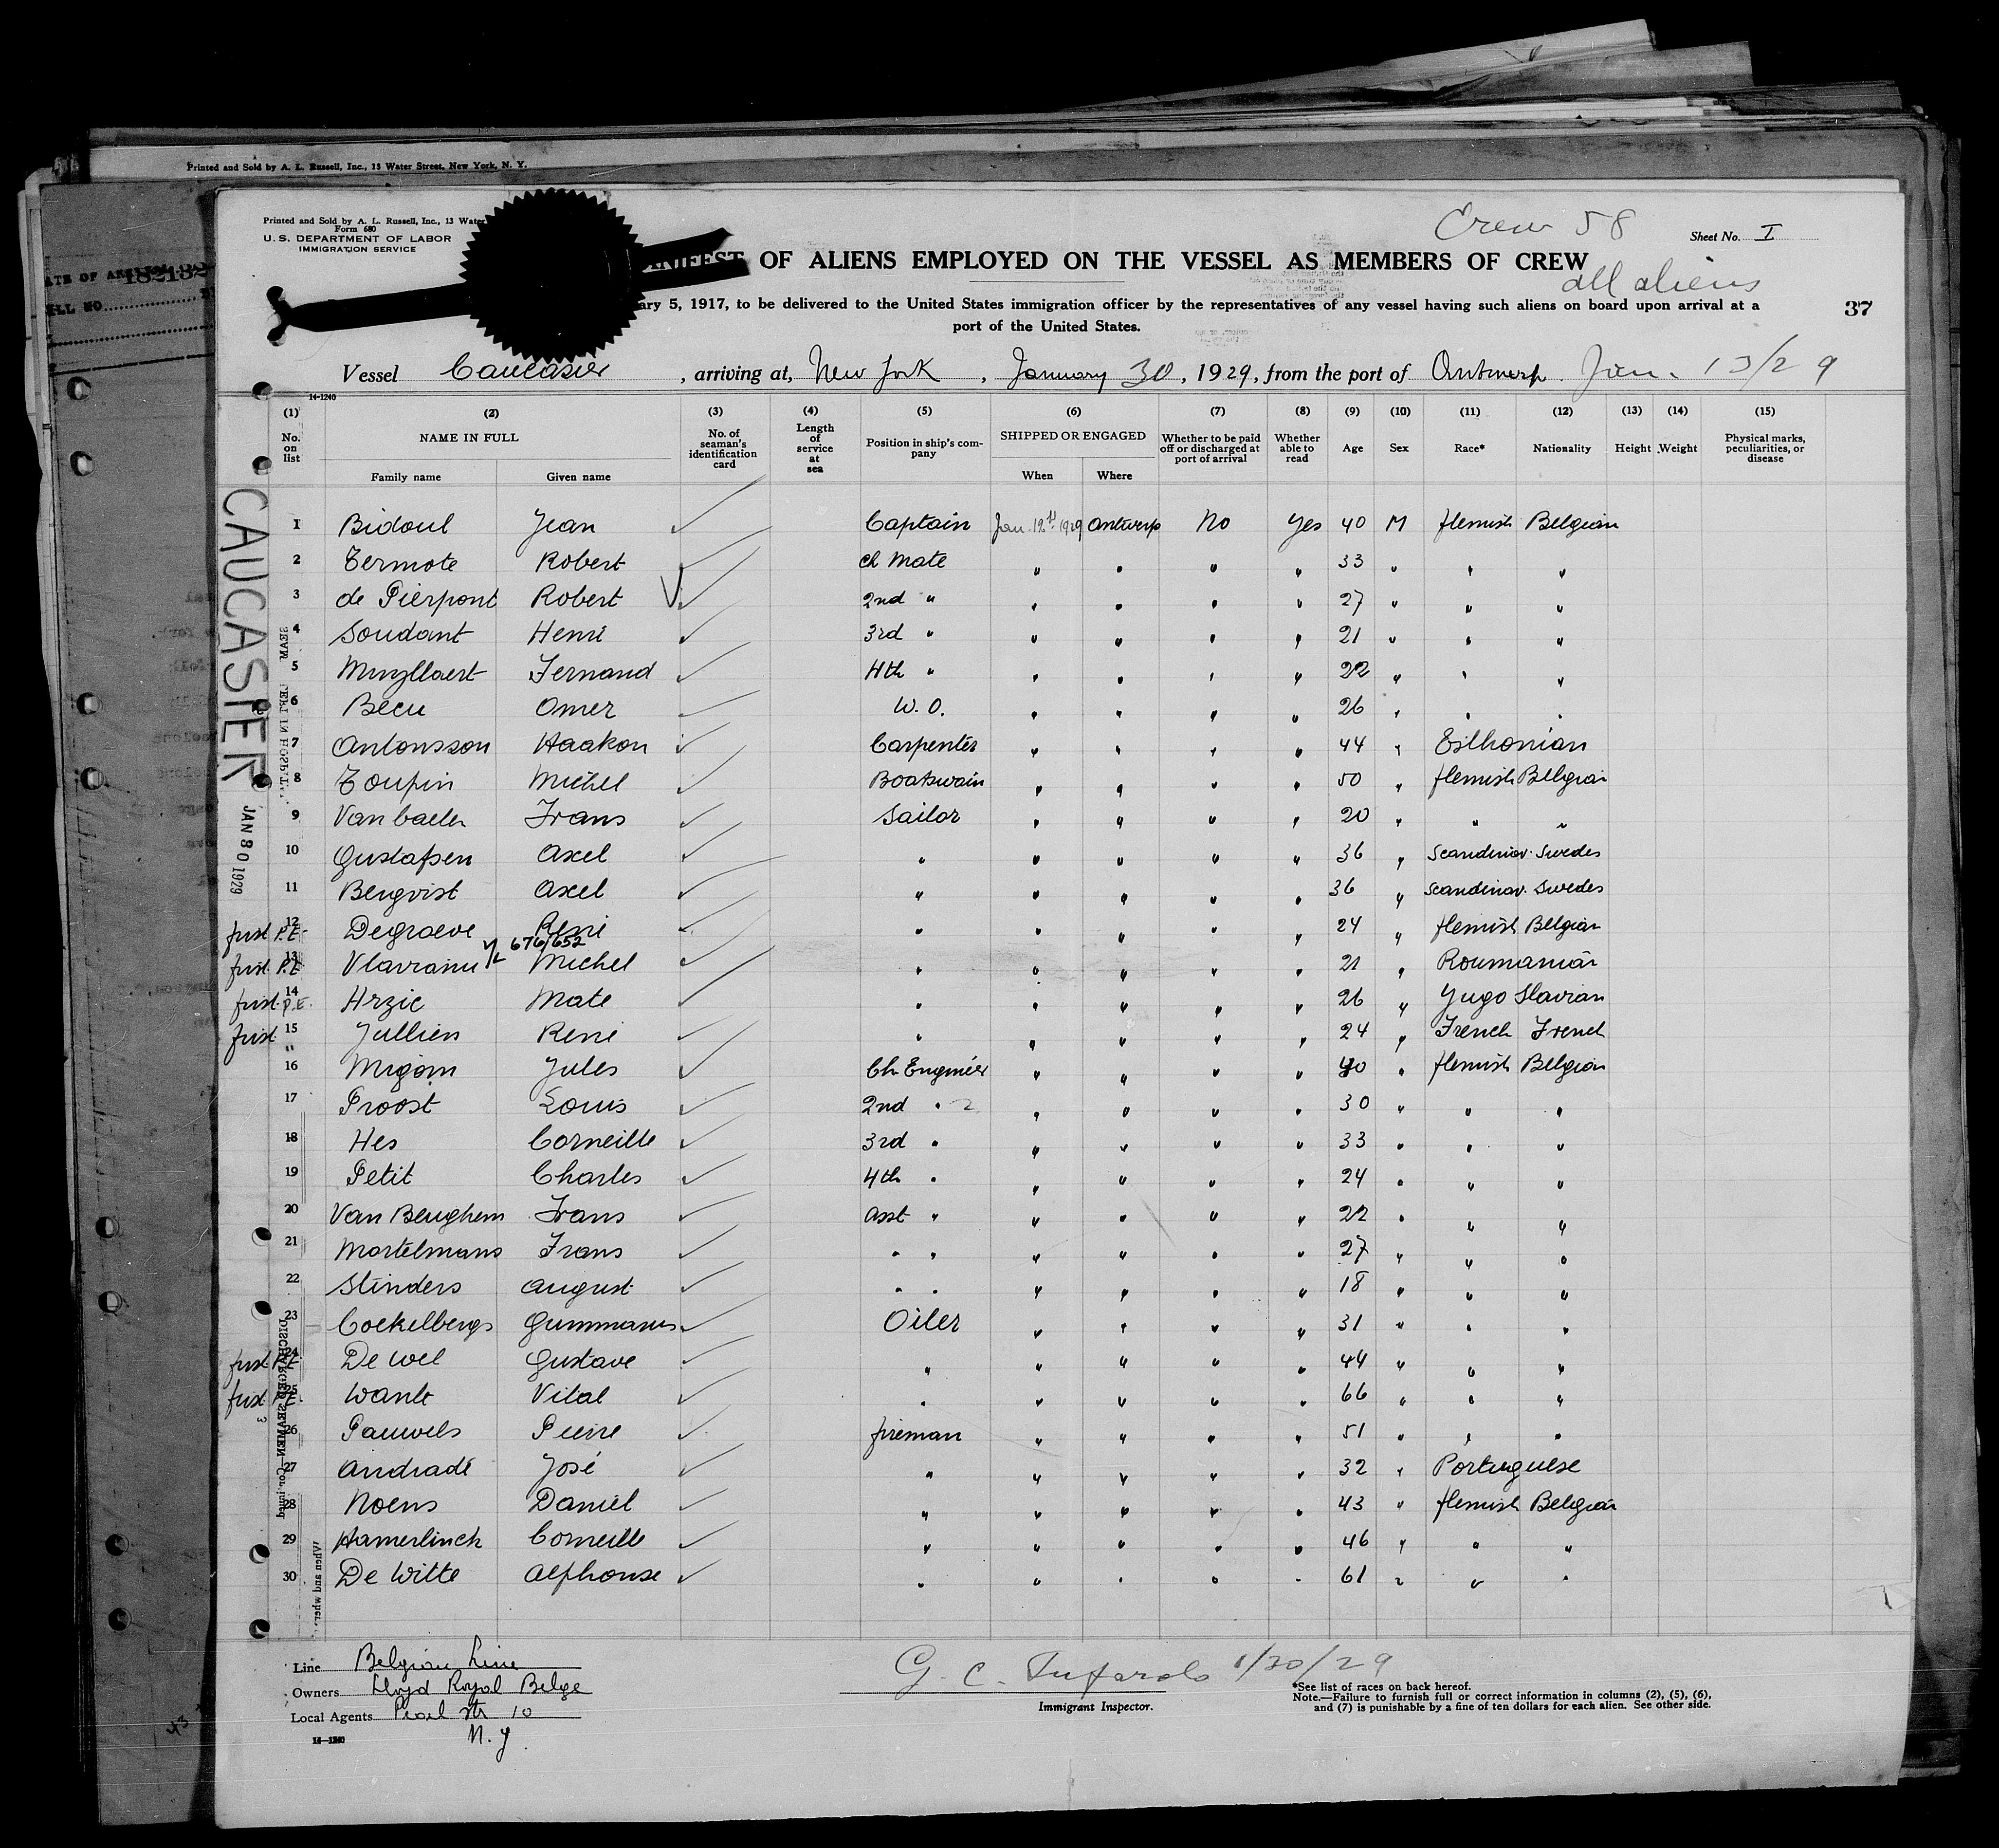 Printed and Sold by A. L. Russell, Inc., 13 Water Street, New York, N. Y.
Printed and Sold by A. L. Russell, Inc., 13 Water
Form 680
U. S. DEPARTMENT OF LABOR
IMMIGRATION SERVICE
Crew 58
Sheet No. I
OF ALIENS EMPLOYED ON THE VESSEL AS MEMBERS OF CREW
all aliens
ary 5, 1917, to be delivered to the United States immigration officer by the representatives of any vessel having such aliens on board upon arrival at a
port of the United States.
37
Vessel Caucasier, arriving at, New York, January 30, 1929, from the port of Antwerp. Jan. 13/29
14-1240
(1) (2) (3) (4) (5) (6) (7) (8) (9) (10) (11) (12) (13) (14) (15)
No. on list NAME IN FULL Family name Given name No. of seaman's identification card Length of service at sea Position in ship's company SHIPPED OR ENGAGED When Where Whether to be paid off or discharged at port of arrival Whether able to read Age Sex Race* Nationality Height Weight Physical marks, peculiarities, or disease
CAUCASIER
JAN 30 1929
1 Bidoul Jean Captain Jan. 12th 1929 Antwerp No Yes 40 M flemish Belgian
2 Termote Robert Ch Mate " " " " 33 " " "
3 de Pierpont Robert 2nd " " " " " 27 " " "
4 Soudant Henri 3rd " " " " " 21 " " "
5 Muyllaert Fernand 4th " " " " " 22 " " "
6 Becu Omer W. O. " " " " 26 " " "
7 Antonsson Haakon Carpenter " " " " 44 " Esthonian
8 Toupin Michel Boatswain " " " " 50 " flemish Belgian
9 Van baelen Frans Sailor " " " " 20 " " "
10 Gustafsen Axel " " " " " 36 " Scandinav. Swedes
11 Bergvist Axel " " " " " 36 " Scandinav. Swedes
first P.E. 12 Degraeve René " " " " " 24 " flemish Belgian
676/652
first P.E. 13 Michel " " " " " 21 " Roumanian
first P.E. 14 Hrzic Mate " " " " " 26 " Yugo Slavian
first " 15 Jullien René " " " " " 24 " French French
16 Migom Jules Ch Engineer " " " " 40 " flemish Belgian
17 Proost Louis 2nd " " " " " 30 " " "
18 Hes Corneille 3rd " " " " " 33 " " "
19 Petit Charles 4th " " " " " 24 " " "
20 Van Beughem Frans Asst " " " " " 22 " " "
21 Mortelmans Frans " " " " " " 27 " " "
22 Stinders August " " " " " " 18 " " "
23 Cockelbergs Gummarus Oiler " " " " 31 " " "
first P.E. 24 De Wel Gustave " " " " " 44 " " "
first P.E. 25 Wante Vital " " " " " 66 " " "
26 Pauwels Pierre fireman " " " " 51 " " "
27 Andradé José " " " " " 32 " Portuguese
28 Noens Daniel " " " " " 43 " flemish Belgian
29 Hamerlinck Corneille " " " " " 46 " " "
30 De Witte Alphonse " " " " " 61 " " "
Line Belgian Line
Owners Lloyd Royal Belge
Local Agents Pearl Str 10
N. Y.
14—1240
G. C. 1/30/29
Immigrant Inspector.
*See list of races on back hereof.
Note.—Failure to furnish full or correct information in columns (2), (5), (6),
and (7) is punishable by a fine of ten dollars for each alien. See other side.